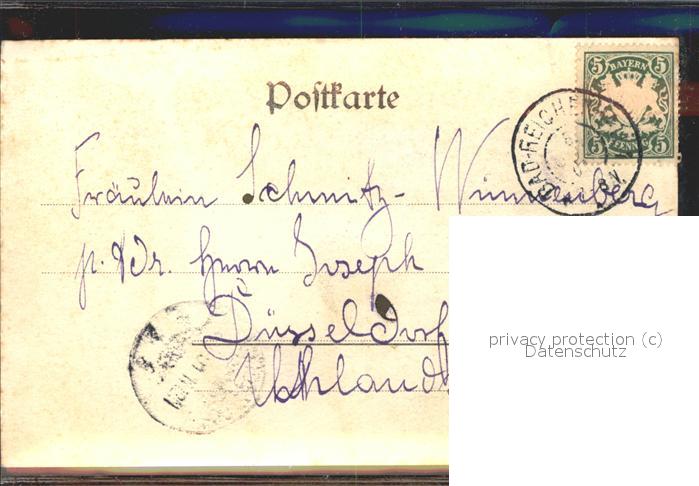 Postkarte
5 BAYERN 5
5 PFENNIG 5
BAD-REICHE
Fräulein Schmitz-Wünnenberg
p. Adr. Herrn Joseph
Düsseldorf
Uhland
privacy protection (c)
Datenschutz